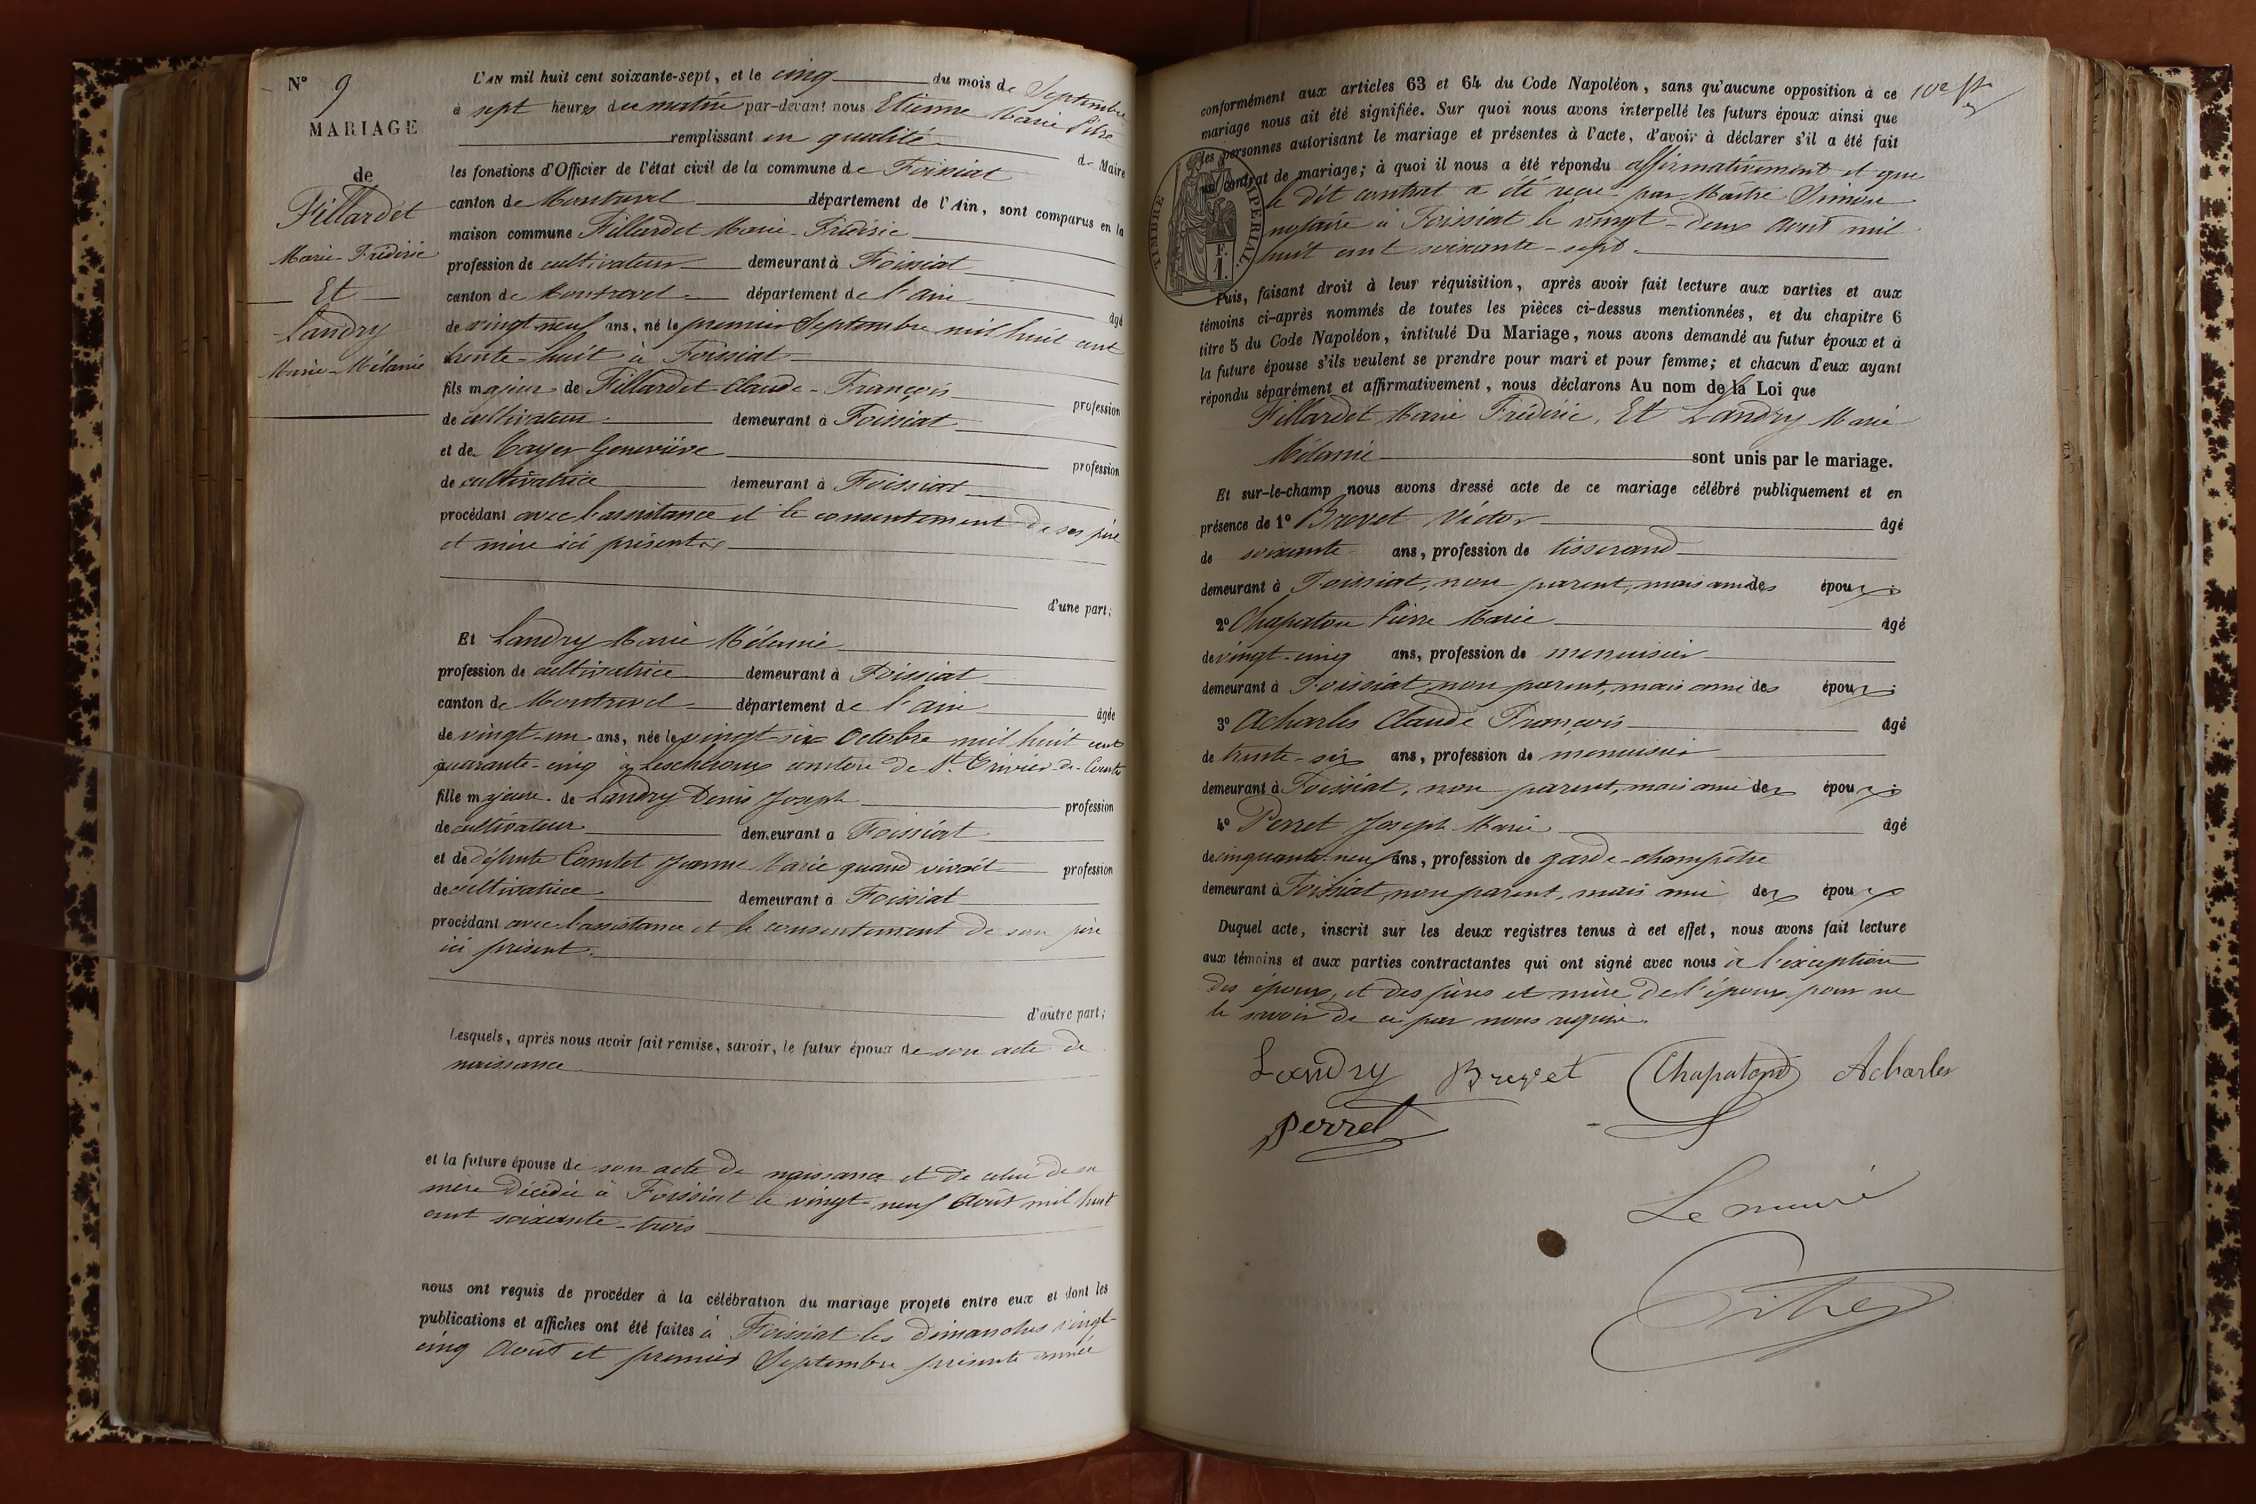 N° 9
MARIAGE
de
Fillardet
Marie-Frédéric
Et
Landry
Marie-Mélanie
L'AN mil huit cent soixante-sept, et le cinq du mois de Septembre
à sept heures du matin par-devant nous Etienne Marie Pitre
remplissant en qualité de Maire
les fonctions d'Officier de l'état civil de la commune de Foissiat
canton de Montrevel département de l'Ain, sont comparus en la
maison commune Fillardet Marie-Frédéric
profession de cultivateur demeurant à Foissiat
canton de Montrevel département de l'ain âgé
de vingt neuf ans, né le premier Septembre mil huit cent
trente-huit à Foissiat
fils majeur de Fillardet Claude-François profession
de cultivateur demeurant à Foissiat
et de Mayer Geneviève profession
de cultivatrice demeurant à Foissiat
procédant avec l'assistance et le consentement de ses père
et mère ici présents
d'une part;
Et Landry Marie Mélanie
profession de cultivatrice demeurant à Foissiat
canton de Montrevel département de l'ain âgée
de vingt-un ans, née le vingt-six Octobre mil huit cent
quarante-cinq à Lescheroux canton de St. Trivier-de-Courtes
fille majeure de Landry Denis Joseph profession
de cultivateur demeurant à Foissiat
et de défunte Comtet Jeanne Marie quand vivait profession
de cultivatrice demeurant à Foissiat
procédant avec l'assistance et le consentement de son père
ici présent.
d'autre part;
Lesquels, après nous avoir fait remise, savoir, le futur époux de son acte de
naissance
et la future épouse de son acte de naissance et de celui de sa
mère décédée à Foissiat le vingt-neuf Août mil huit
cent soixante-trois
nous ont requis de procéder à la célébration du mariage projeté entre eux et dont les
publications et affiches ont été faites à Foissiat les dimanches vingt-
cinq Août et premier Septembre présente année
conformément aux articles 63 et 64 du Code Napoléon, sans qu'aucune opposition à ce
mariage nous ait été signifiée. Sur quoi nous avons interpellé les futurs époux ainsi que
les personnes autorisant le mariage et présentes à l'acte, d'avoir à déclarer s'il a été fait
un contrat de mariage; à quoi il nous a été répondu affirmativement et que
le dit contrat a été reçu par Maître Simon
notaire à Foissiat le vingt-deux Août mil
huit cent soixante-sept.
TIMBRE IMPERIAL
F.
1.
Puis, faisant droit à leur réquisition, après avoir fait lecture aux parties et aux
témoins ci-après nommés de toutes les pièces ci-dessus mentionnées, et du chapitre 6
titre 5 du Code Napoléon, intitulé Du Mariage, nous avons demandé au futur époux et à
la future épouse s'ils veulent se prendre pour mari et pour femme; et chacun d'eux ayant
répondu séparément et affirmativement, nous déclarons Au nom de la Loi que
Fillardet Marie Frédéric, Et Landry Marie
Mélanie sont unis par le mariage.
Et sur-le-champ nous avons dressé acte de ce mariage célébré publiquement et en
présence de 1° Brevet Victor âgé
de soixante ans, profession de tisserand
demeurant à Foissiat, non parent, mais ami des époux;
2° Chapaton Pierre Marie âgé
de vingt-cinq ans, profession de menuisier
demeurant à Foissiat, non parent, mais ami des époux;
3° Acharles Claude François âgé
de trente-six ans, profession de menuisier
demeurant à Foissiat, non parent, mais ami des époux;
4° Perret Joseph Marie âgé
de cinquante-neuf ans, profession de garde-champêtre
demeurant à Foissiat, non parent, mais ami des époux
Duquel acte, inscrit sur les deux registres tenus à cet effet, nous avons fait lecture
aux témoins et aux parties contractantes qui ont signé avec nous à l'exception
des époux, et des père et mère de l'époux pour ne
le savoir de ce par nous requis.
Landry Brevet Chapaton Acharles
Perret
Le maire
Pitre